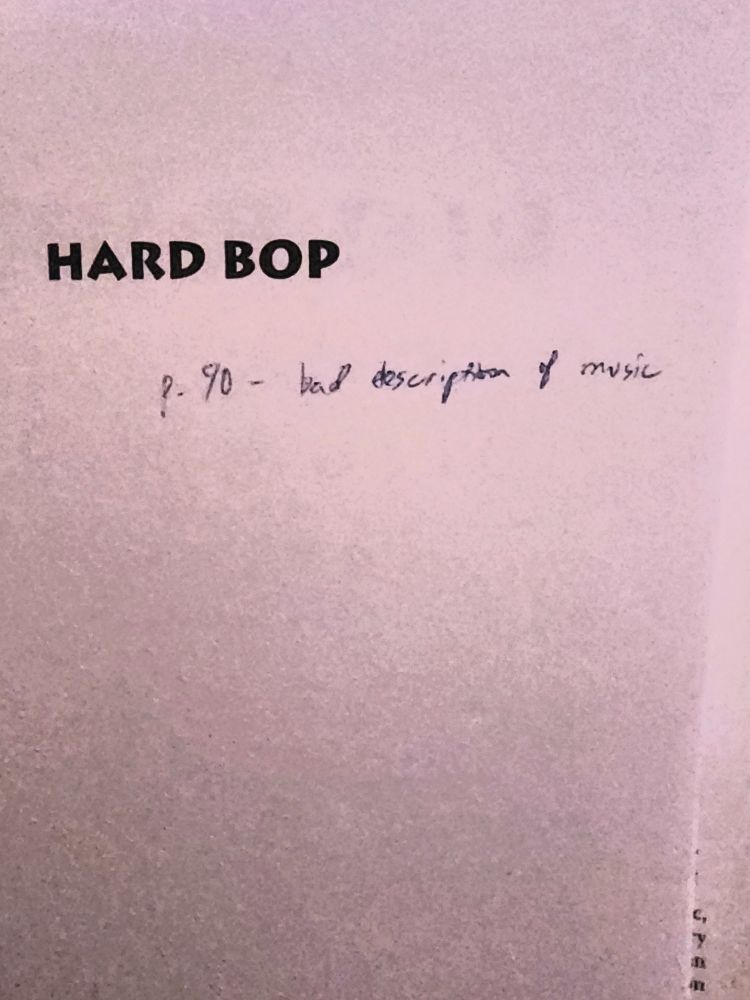 HARD BOP
p. 90 - bad description of music
c,
ry
n
m